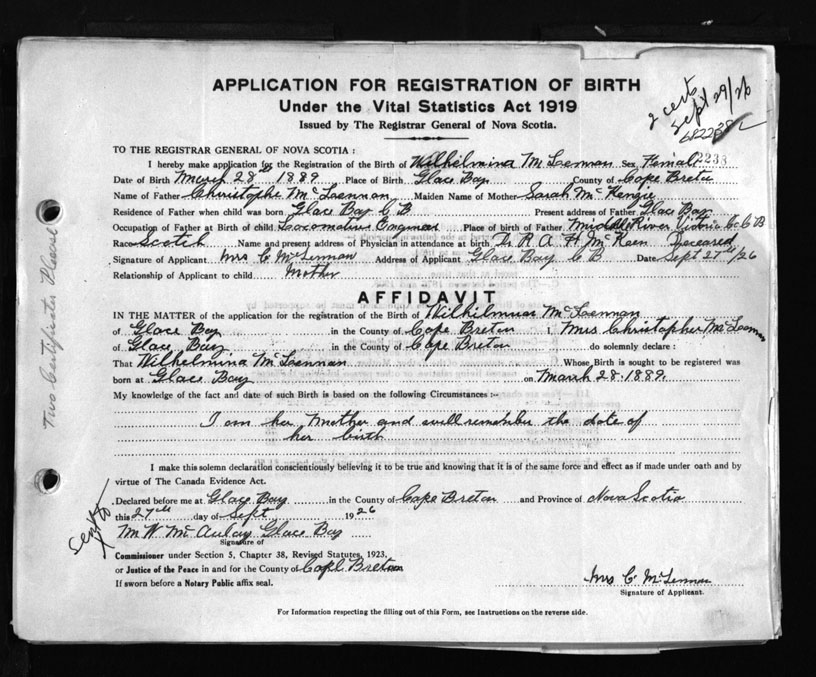 APPLICATION FOR REGISTRATION OF BIRTH
Under the Vital Statistics Act 1919
Issued by The Registrar General of Nova Scotia.
2 certs
Sept 29/26
TO THE REGISTRAR GENERAL OF NOVA SCOTIA:
I hereby make application for the Registration of the Birth of Wilhelmina McLennan Sex Female 2233
Date of Birth March 28th 1889 Place of Birth Glace Bay County of Cape Breton
Name of Father Christophe McLennan Maiden Name of Mother Sarah McKenzie
Residence of Father when child was born Glace Bay C B Present address of Father Glace Bay
Occupation of Father at Birth of child Locomotive Engineer Place of birth of Father Middle River Victoria Co C B
Race Scotch Name and present address of Physician in attendance at birth Dr R A H McKeen Deceased
Signature of Applicant Mrs C McLennan Address of Applicant Glace Bay C B Date Sept 27th/26
Relationship of Applicant to child Mother
AFFIDAVIT
IN THE MATTER of the application for the registration of the Birth of Wilhelmina McLennan
of Glace Bay in the County of Cape Breton I, Mrs Christopher McLennan
of Glace Bay in the County of Cape Breton do solemnly declare:
That Wilhelmina McLennan Whose Birth is sought to be registered was
born at Glace Bay on March 28-1889
My knowledge of the fact and date of such Birth is based on the following Circumstances :-
I am her Mother and will remember the date of
her birth
I make this solemn declaration conscientiously believing it to be true and knowing that it is of the same force and effect as if made under oath and by
virtue of The Canada Evidence Act.
Declared before me at Glace Bay in the County of Cape Breton and Province of Nova Scotia
this 27th day of Sept 1926
M W McAulay Glace Bay
Signature of
Commissioner under Section 5, Chapter 38, Revised Statutes, 1923,
or Justice of the Peace in and for the County of Cape Breton
If sworn before a Notary Public affix seal.
Mrs C McLennan
Signature of Applicant.
For Information respecting the filling out of this Form, see Instructions on the reverse side.
Two Certificates Please